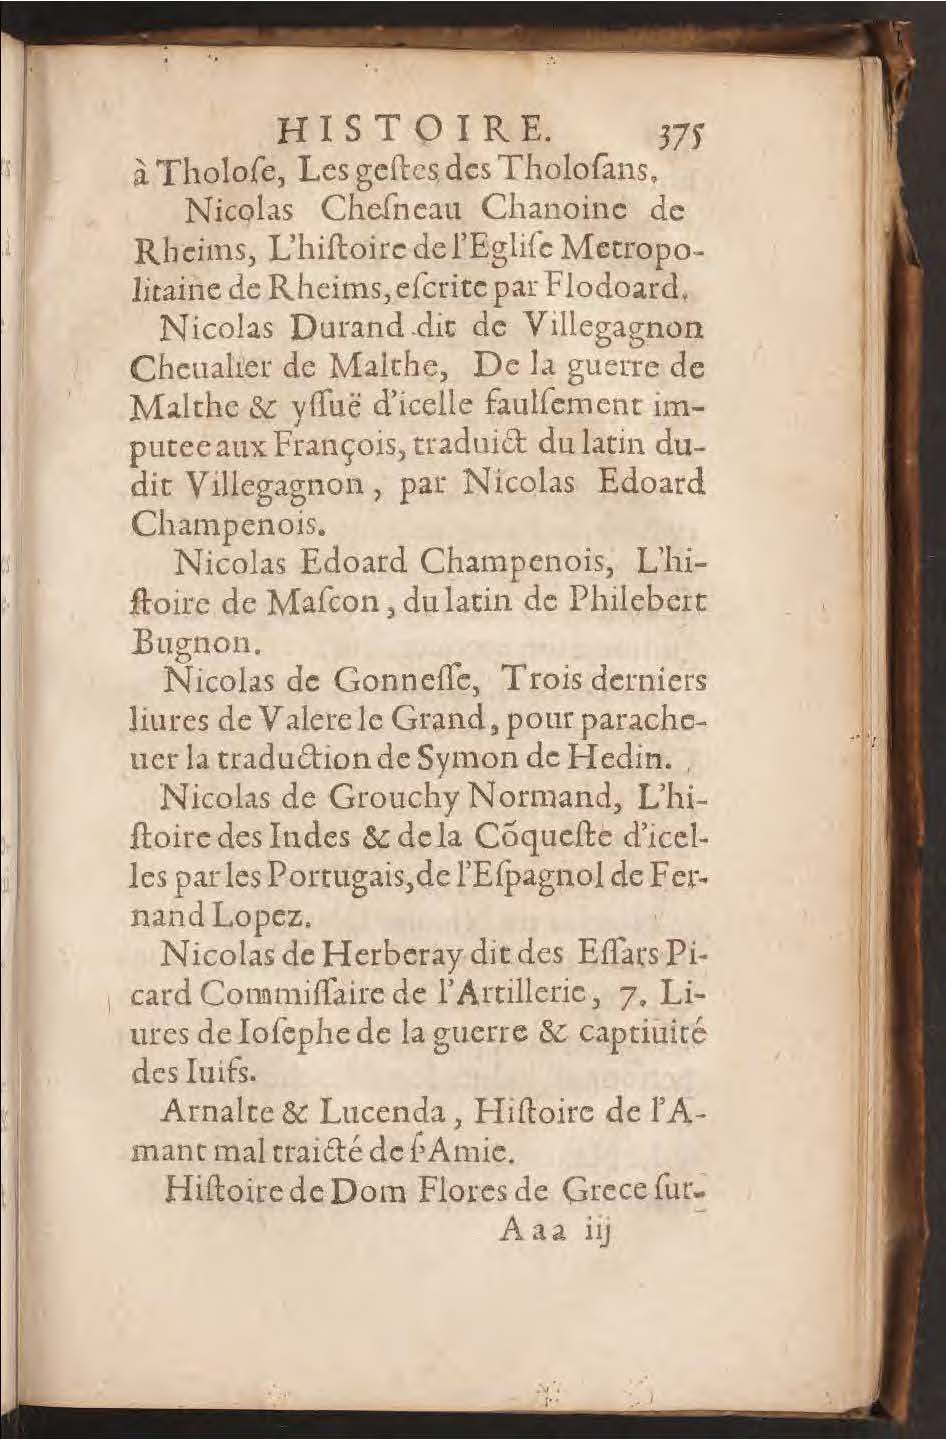 HISTOIRE. 375
à Tholoſe, Les geſtes des Tholoſans.
Nicolas Cheſneau Chanoine de
Rheims, L'hiſtoire de l'Egliſe Metropo-
litaine de Rheims, eſcrite par Flodoard.
Nicolas Durand dit de Villegagnon
Cheualier de Malthe, De la guerre de
Malthe & yſſuë d'icelle faulſement im-
putee aux François, traduict du latin du-
dit Villegagnon, par Nicolas Edoard
Champenois.
Nicolas Edoard Champenois, L'hi-
ſtoire de Maſcon, du latin de Philebert
Bugnon.
Nicolas de Gonneſſe, Trois derniers
liures de Valere le Grand, pour parache-
uer la traduction de Symon de Hedin.
Nicolas de Grouchy Normand, L'hi-
ſtoire des Indes & de la Cōqueſte d'icel-
les par les Portugais, de l'Eſpagnol de Fer-
nand Lopez.
Nicolas de Herberay dit des Eſſars Pi-
card Commiſſaire de l'Artillerie, 7. Li-
ures de Ioſephe de la guerre & captiuité
des Iuifs.
Arnalte & Lucenda, Hiſtoire de l'A-
mant mal traicté de ſ'Amie.
Hiſtoire de Dom Flores de Grece ſur-
Aaa iij